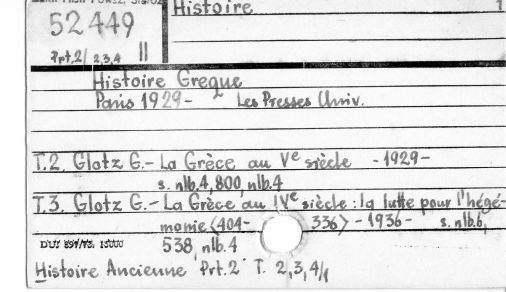 Histoire 1
52 449
Prt.2/ 2,3,4 II
Histoire Greque
Paris 1929- Les Presses Univ.
T.2. Glotz G.- La Grèce au Ve siècle -1929-
s. nlb.4, 800, nlb.4
T.3. Glotz G.- La Grèce au IVe siècle : la lutte pour l'hégé-
monie (404- 336) -1936- s. nlb.6,
538, nlb.4
Histoire Ancienne Prt.2 T. 2,3,4/1